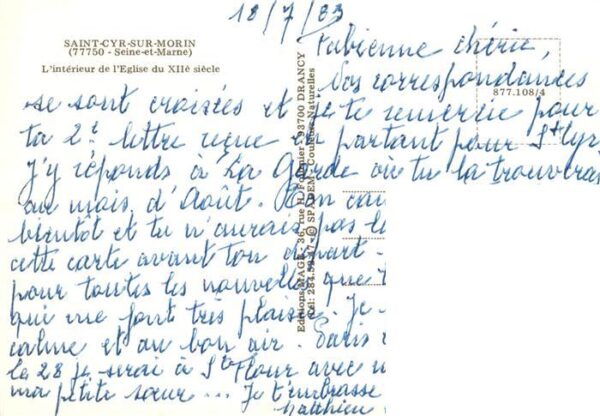 18/7/83
SAINT-CYR-SUR-MORIN
(77750 - Seine-et-Marne)
L'intérieur de l'Eglise du XIIè siècle
877.108/4
Editions MAGE, 36, rue H. Fournier - 93700 DRANCY
Tél: 284.52.47 - © SPADEM - Couleurs Naturelles
Fabienne chérie,
Nos correspondances
se sont croisées et je te remercie pour
ta 2e lettre reçue en partant pour St Cyr
j'y réponds à La Garde où tu la trouveras
au mois d'Août.
bientôt et tu n'aurais pas
cette carte avant ton départ.
pour toutes les nouvelles que
qui me font très plaisir. Je
calme et au bon air. Paris
le 28 je serai à St Flour avec
ma petite sœur... Je t'embrasse
Matthieu